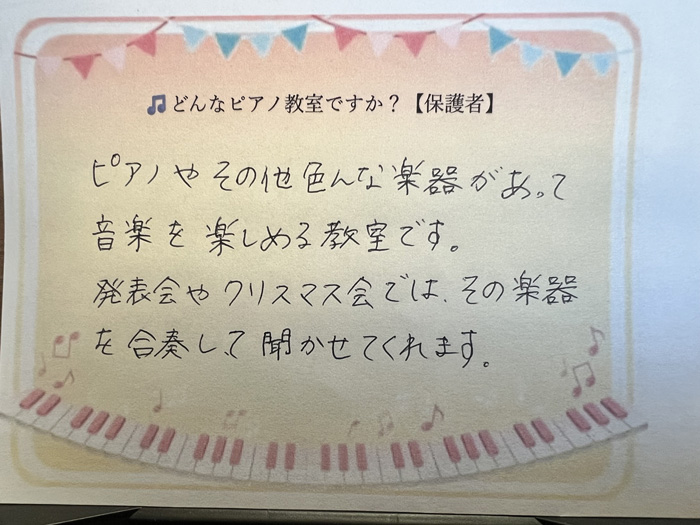 🎵どんなピアノ教室ですか？【保護者】
ピアノやその他色んな楽器があって
音楽を楽しめる教室です。
発表会やクリスマス会では、その楽器
を合奏して聞かせてくれます。